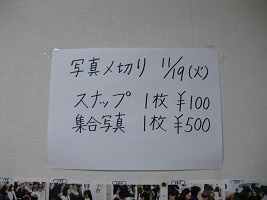 写真〆切り 11/19(火)
スナップ 1枚 ¥100
集合写真 1枚 ¥500